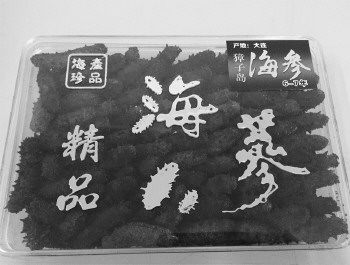 海產
珍品
产地：大连
獐子岛
海参
6-7年
海参
精品